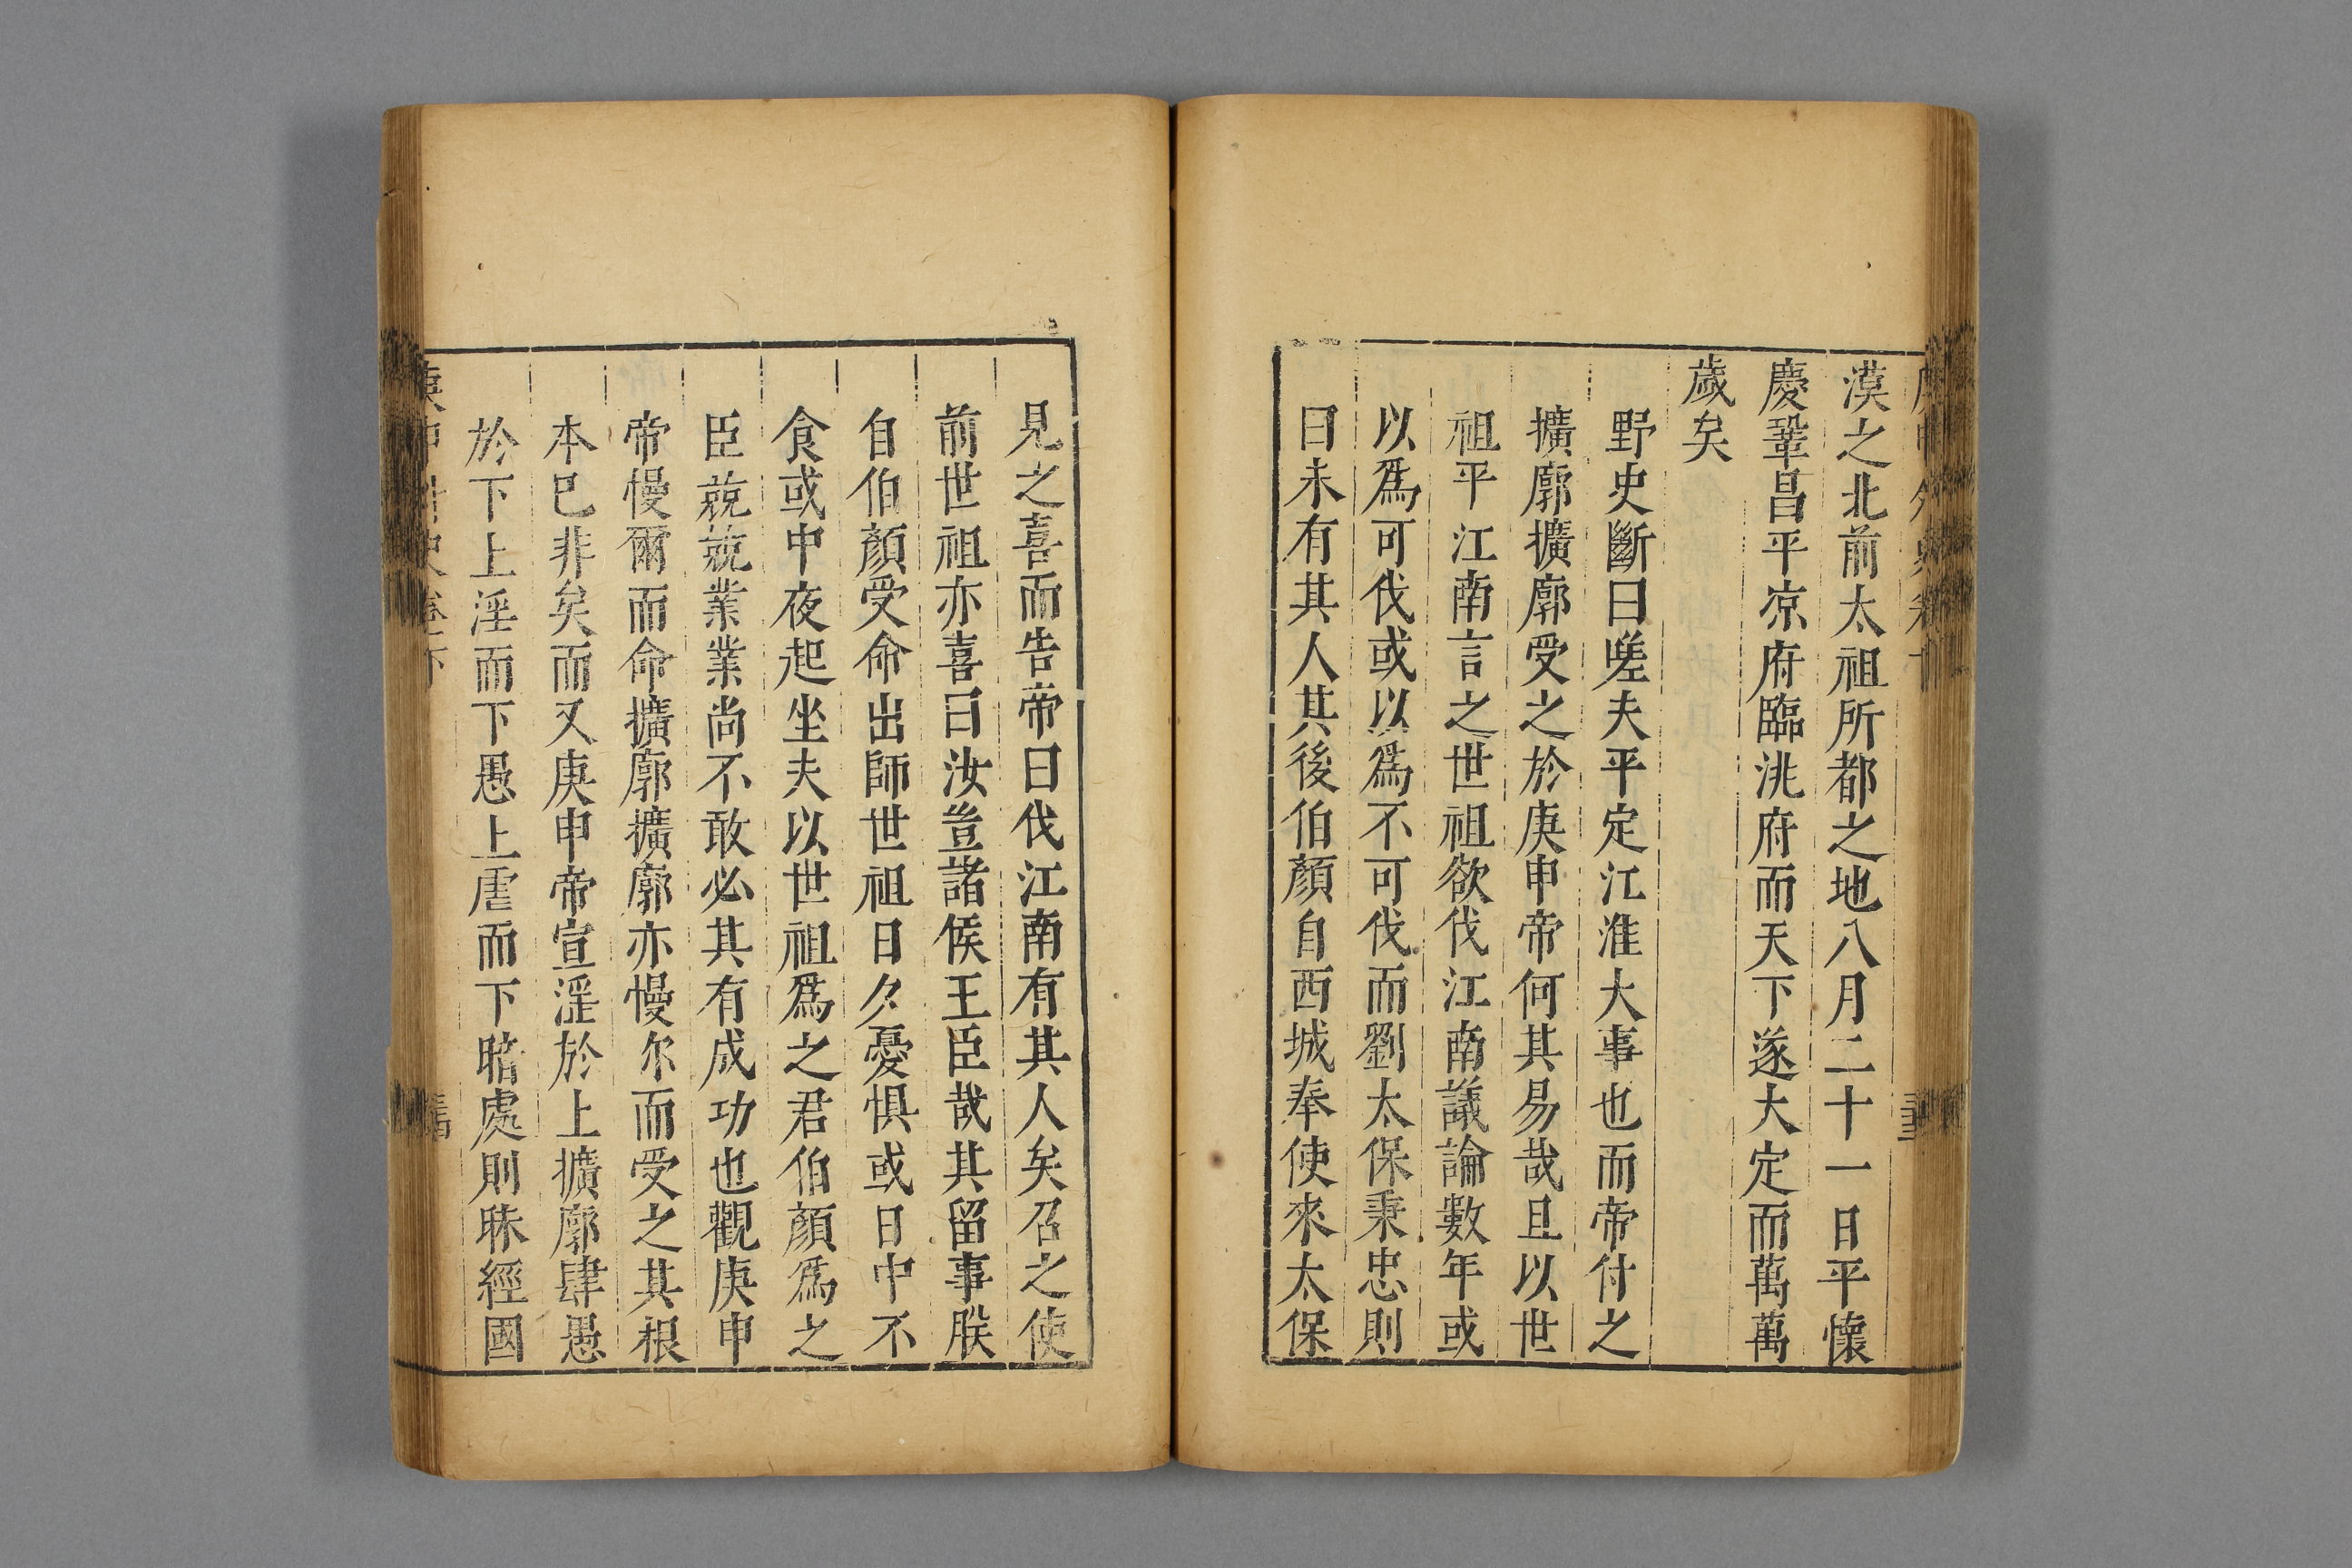 漠之北前太祖所都之地八月二十一日平懷
慶鞏昌平凉府臨洮府而天下遂大定而萬萬
歲矣
野史斷曰嗟夫平定江淮大事也而帝付之
擴廓擴廓受之於庚申帝何其易哉且以世
祖平江南言之世祖欲伐江南議論數年或
以爲可伐或以爲不可伐而劉太保秉忠則
曰未有其人其後伯顏自西城奉使來太保
見之喜而告帝曰伐江南有其人矣召之使
前世祖亦喜曰汝豈諸侯王臣哉其留事朕
自伯顏受命出師世祖日夕憂惧或日中不
食或中夜起坐夫以世祖爲之君伯顏爲之
臣兢兢業業尚不敢必其有成功也觀庚申
帝慢爾而命擴廓擴廓亦慢尔而受之其根
本已非矣而又庚申帝宣滛於上擴廓肆愚
於下上淫而下愚上虐而下暗處則昧經國